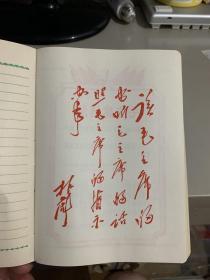 读毛主席的书
听毛主席的话
照毛主席的指示
办事
林彪